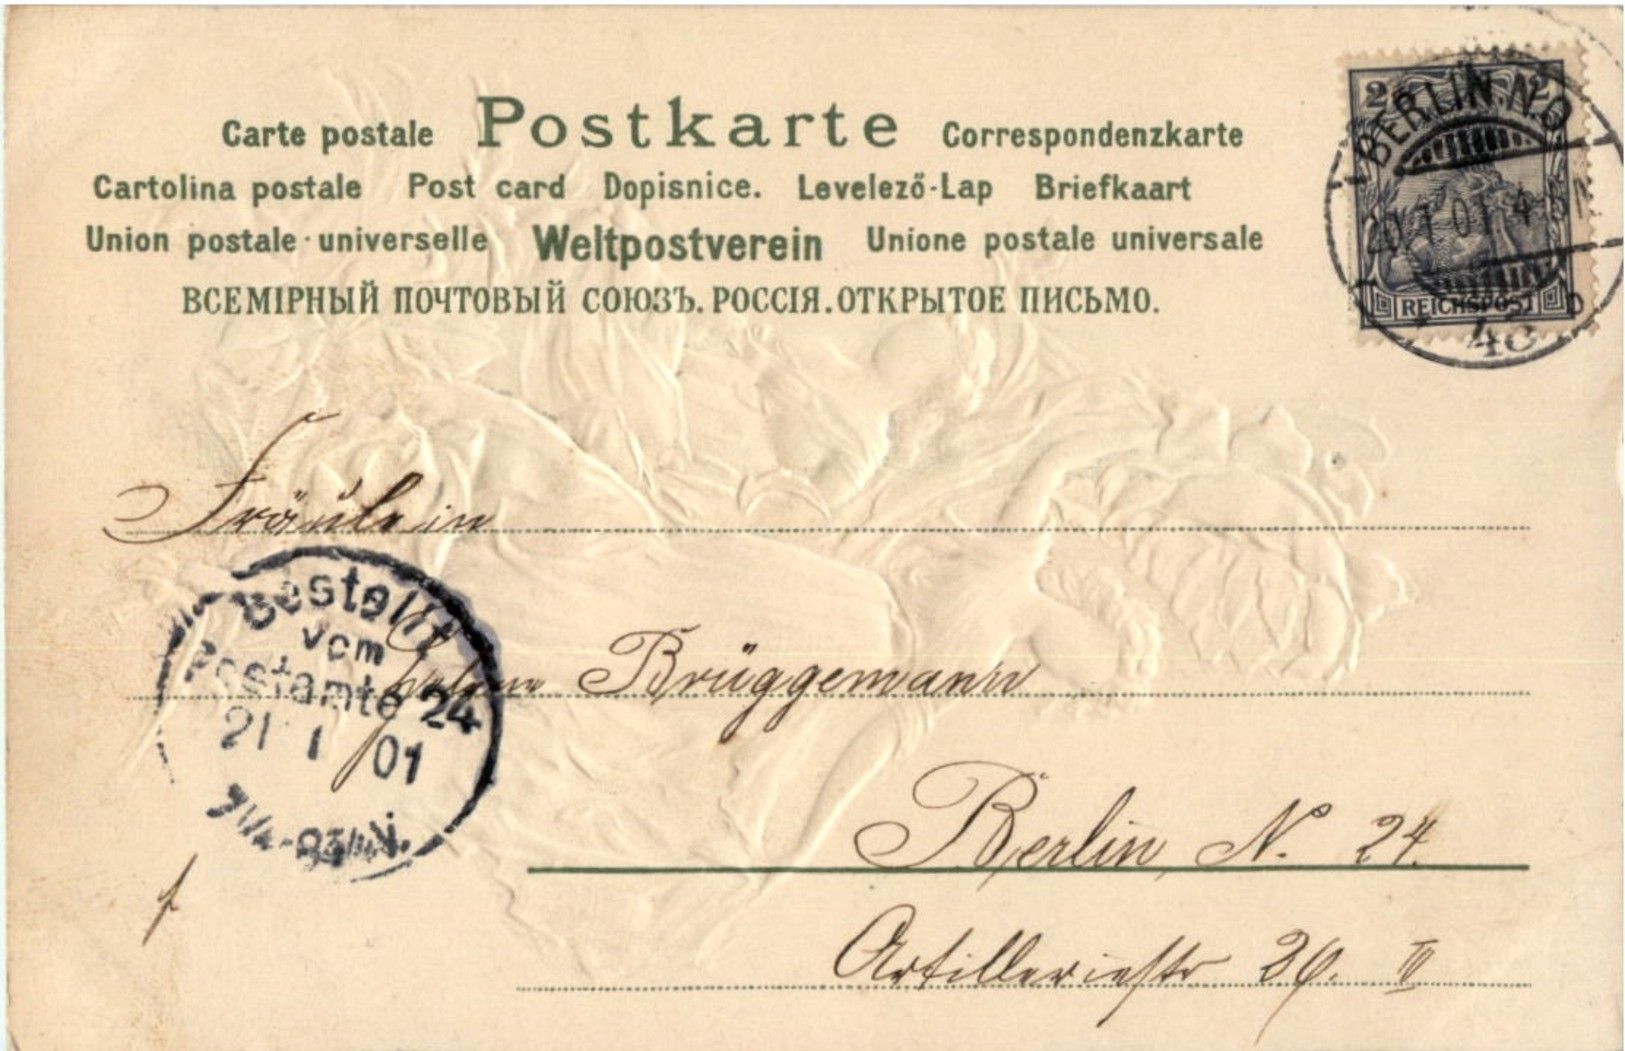 Carte postale Postkarte Correspondenzkarte
Cartolina postale Post card Dopisnice. Levelező-Lap Briefkaart
Union postale universelle Weltpostverein Unione postale universale
ВСЕМІРНЫЙ ПОЧТОВЫЙ СОЮЗЪ. РОССІЯ. ОТКРЫТОЕ ПИСЬМО.
2 2
BERLIN. N.O.
20.1.01. 4-5N
REICHSPOST
Fräulein
Bestellt
vom
Postamte 24
21 1 01
Brüggemann
Berlin, N. 24.
Artilleriestr 26. III